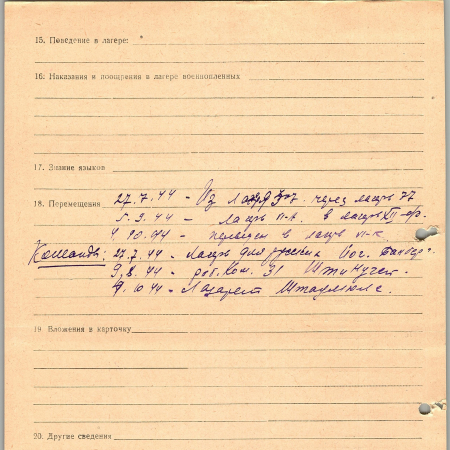 15. Поведение в лагере:
16. Наказания и поощрения в лагере военнопленных
17. Знание языков
18. Перемещения 27.7.44 - Из лаг. 367 через лагерь 77
5.9.44 - лагерь II-А. в лагерь XII-
4.10.44 - переведен в лагерь II-
Команды: 27.7.44 - Лагерь для русских
9.8.44 - раб. ком. 31
4.10.44 - Лазарет
19. Вложения в карточку
20. Другие сведения